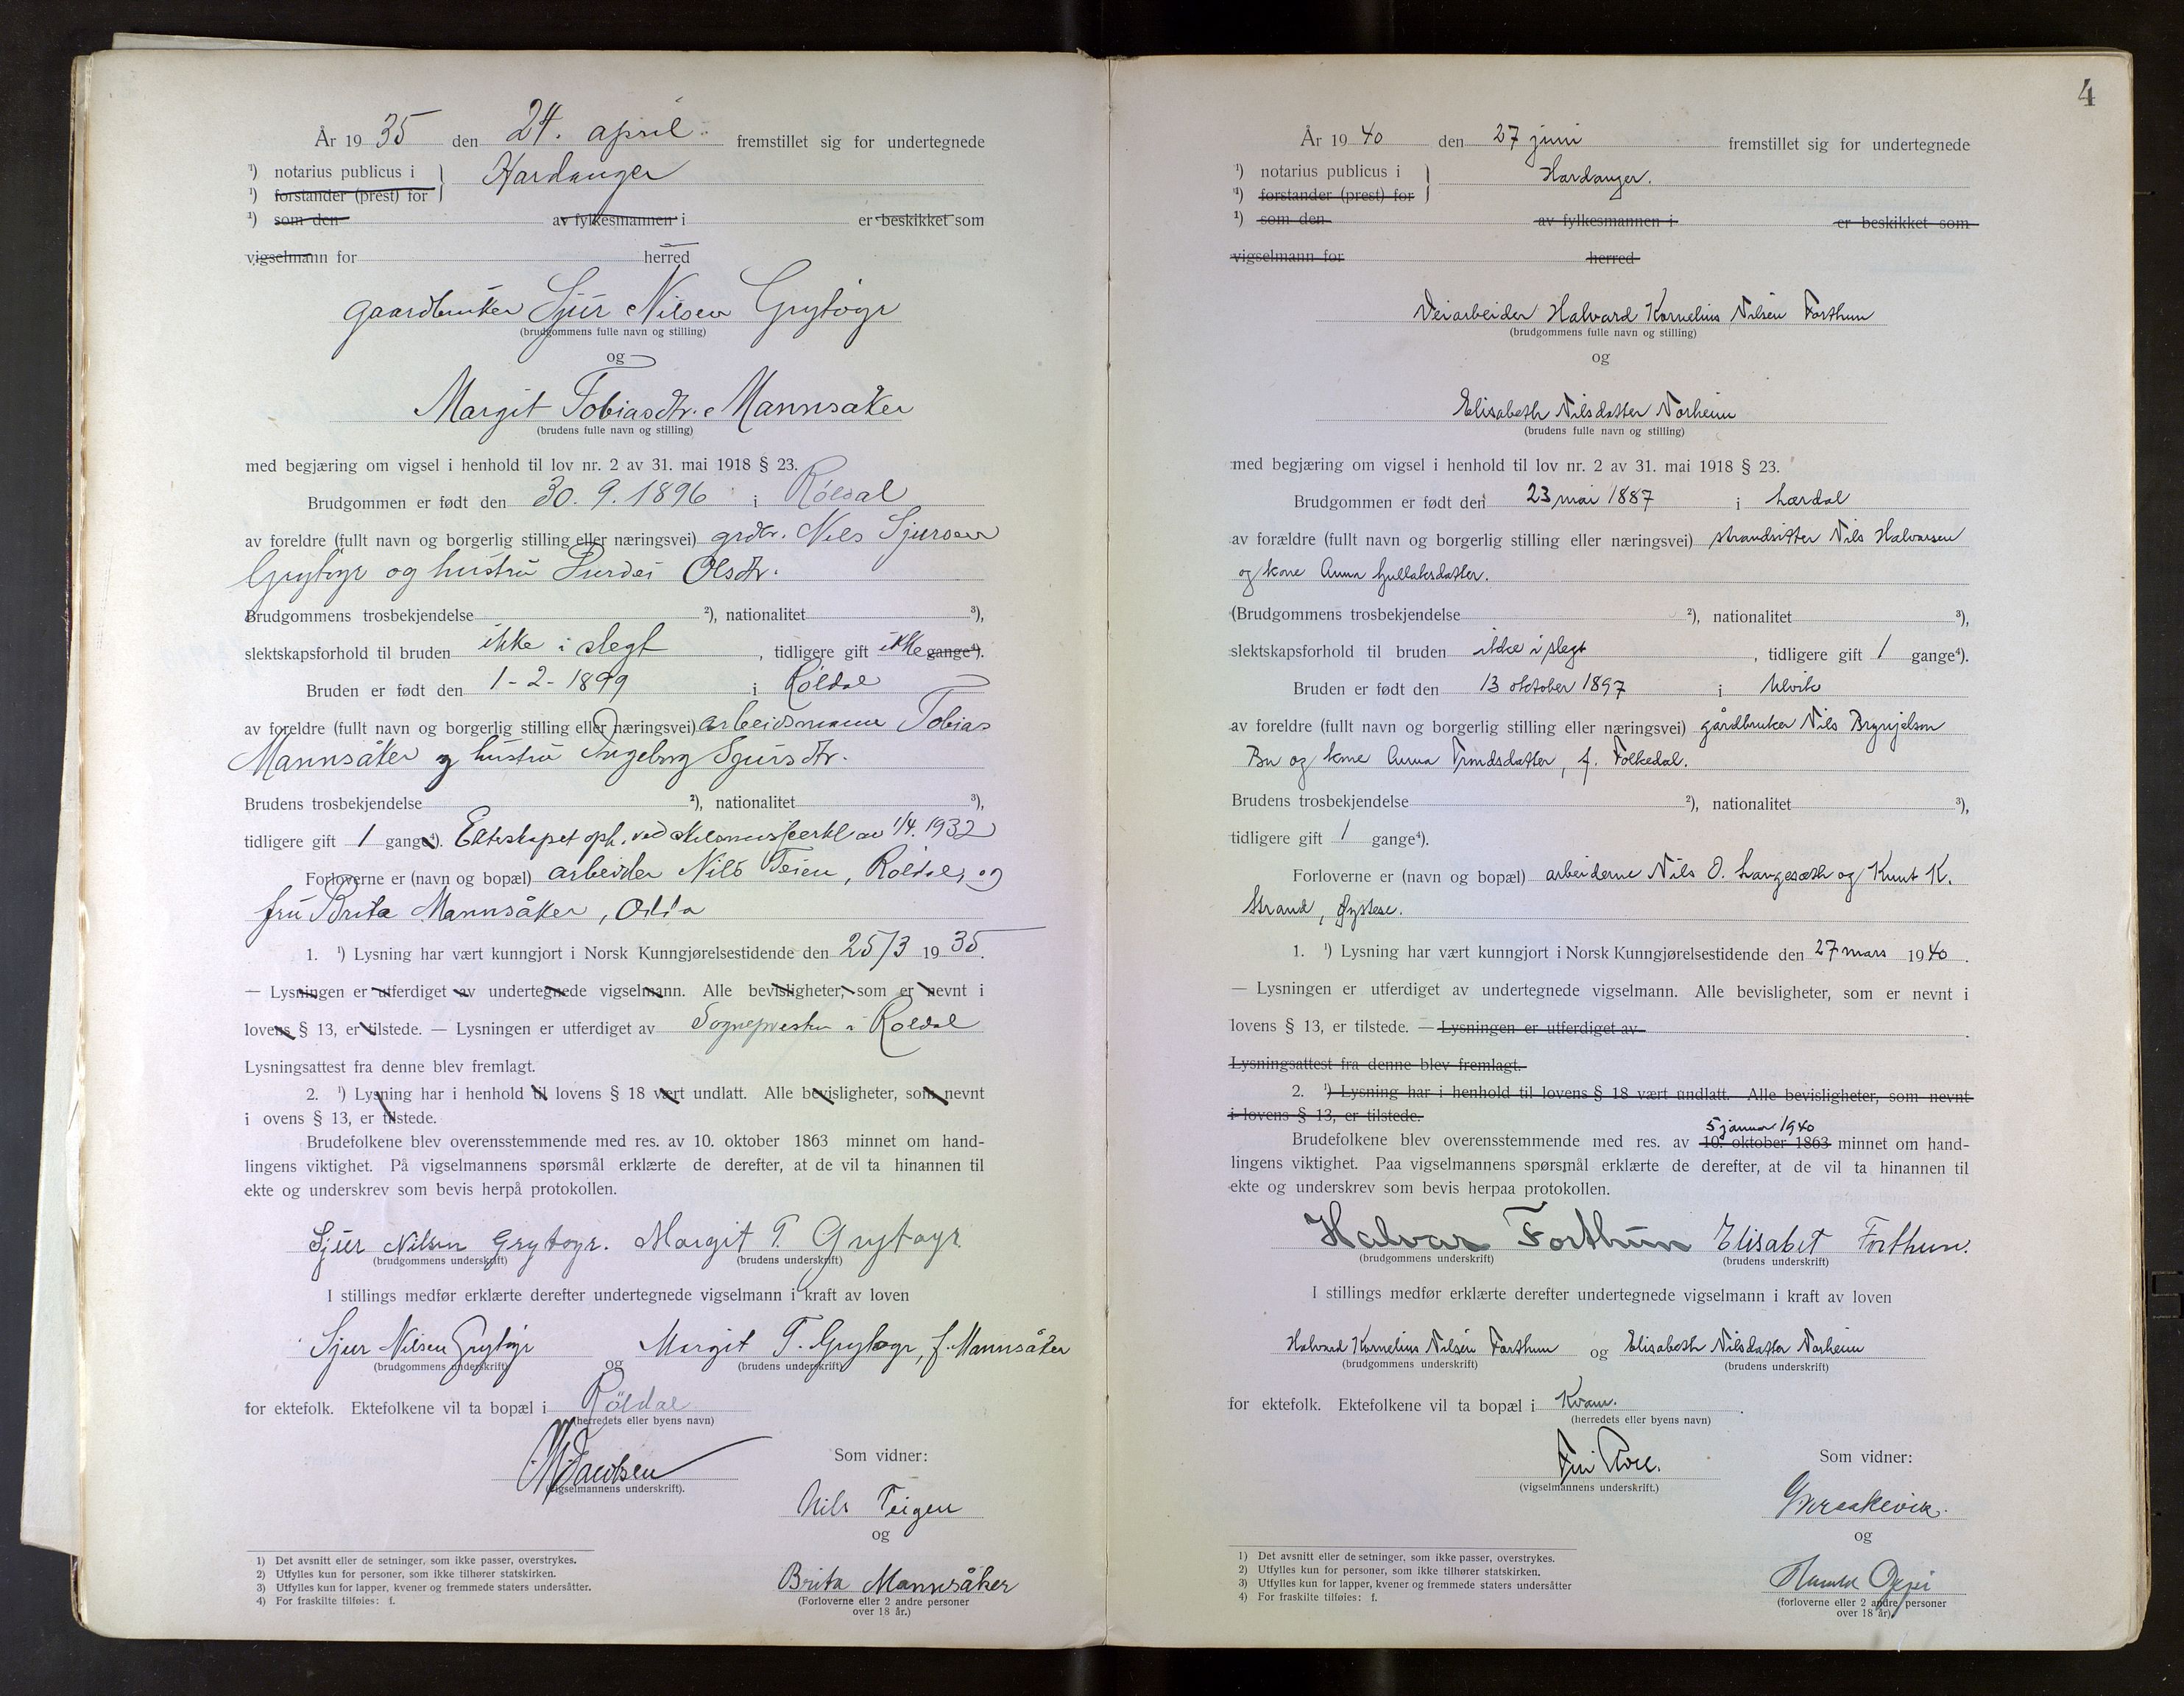 År 1935 den 24. april. fremstillet sig for undertegnede
¹) notarius publicus i Hardanger
¹) forstander (prest) for
¹) som den av fylkesmannen i er beskikket som
vigselmann for herred
gaardbruker Sjur Nilsen Grytøyr
(brudgommens fulle navn og stilling)
og
Margit Tobiasdtr. Mannsåker
(brudens fulle navn og stilling)
med begjæring om vigsel i henhold til lov nr. 2 av 31. mai 1918 § 23.
Brudgommen er født den 30. 9. 1896 i Røldal
av foreldre (fullt navn og borgerlig stilling eller næringsvei) grdbr. Nils Sjursen
Grytøyr og hustru Durdei Olsdtr.
Brudgommens trosbekjendelse ²), nationalitet ³),
slektskapsforhold til bruden ikke i slegt, tidligere gift ikke gange⁴).
Bruden er født den 1-2-1899 i Røldal
av foreldre (fullt navn og borgerlig stilling eller næringsvei) arbeidsmann Tobias
Mannsåker og hustru Ingeborg Sjursdtr.
Brudens trosbekjendelse ²), nationalitet ³),
tidligere gift 1 gang⁴). Ekteskapet oph. ved av 1/4. 1932
Forloverne er (navn og bopæl) arbeider Nils Teien, Røldal, og
fru Brita Mannsåker, Odda
1. ¹) Lysning har vært kunngjort i Norsk Kunngjørelsestidende den 25/3 1935.
— Lysningen er utferdiget av undertegnede vigselmann. Alle bevisligheter, som er nevnt i
lovens § 13, er tilstede. — Lysningen er utferdiget av Sognepresten i Røldal
Lysningsattest fra denne blev fremlagt.
2. ¹) Lysning har i henhold til lovens § 18 vært undlatt. Alle bevisligheter, som nevnt
i ovens § 13, er tilstede.
Brudefolkene blev overensstemmende med res. av 10. oktober 1863 minnet om hand-
lingens viktighet. På vigselmannens spørsmål erklærte de derefter, at de vil ta hinannen til
ekte og underskrev som bevis herpå protokollen.
Sjur Nilsen Grytøyr. Margit T. Grytøyr.
(brudgommens underskrift) (brudens underskrift)
I stillings medfør erklærte derefter undertegnede vigselmann i kraft av loven
Sjur Nilsen Grytøyr og Margit T. Grytøyr, f. Mannsåker
(brudgommens underskrift) (brudens underskrift)
for ektefolk. Ektefolkene vil ta bopæl i Röldal
(herredets eller byens navn)
Jacobsen
(vigselmannens underskrift).
Som vidner:
Nils Teigen
og
Brita Mannsåker
(Forloverne eller 2 andre personer
over 18 år.)
1) Det avsnitt eller de setninger, som ikke passer, overstrykes.
2) Utfylles kun for personer, som ikke tilhører statskirken.
3) Utfylles kun for lapper, kvener og fremmede staters undersåtter.
4) For fraskilte tilføies: f.
4
År 1940 den 27 juni fremstillet sig for undertegnede
¹) notarius publicus i Hardanger.
¹) forstander (prest) for
¹) som den av fylkesmannen i er beskikket som
vigselmann for herred
Veiarbeider Halvard Kornelius Nilsen Forthun
(brudgommens fulle navn og stilling)
og
Elisabeth Nilsdatter Norheim
(brudens fulle navn og stilling)
med begjæring om vigsel i henhold til lov nr. 2 av 31. mai 1918 § 23.
Brudgommen er født den 23 mai 1887 i Lærdal
av forældre (fullt navn og borgerlig stilling eller næringsvei) strandsitter Nils Halvorsen
og kone Anna Gullaksdatter.
(Brudgommens trosbekjendelse ²), nationalitet ³),
slektskapsforhold til bruden ikke i slegt, tidligere gift 1 gange⁴).
Bruden er født den 13 oktober 1897 i Ulvik
av foreldre (fullt navn og borgerlig stilling eller næringsvei) gårdbruker Nils Brynjelsen
Bu og kone Anna Trondsdatter, f. Folkedal.
Brudens trosbekjendelse ²), nationalitet ³),
tidligere gift 1 gange⁴).
Forloverne er (navn og bopæl) arbeiderne Nils O. Langesæth og Knut K.
Strand, Øystese.
1. ¹) Lysning har vært kunngjort i Norsk Kunngjørelsestidende den 27 mars 1940.
— Lysningen er utferdiget av undertegnede vigselmann. Alle bevisligheter, som er nevnt i
lovens § 13, er tilstede. — Lysningen er utferdiget av
Lysningsattest fra denne blev fremlagt.
2. ¹) Lysning har i henhold til lovens § 18 vært undlatt. Alle bevisligheter, som nevnt
i lovens § 13, er tilstede.
5 januar 1940
Brudefolkene blev overensstemmende med res. av 10. oktober 1863 minnet om hand-
lingens viktighet. Paa vigselmannens spørsmål erklærte de derefter, at de vil ta hinannen til
ekte og underskrev som bevis herpaa protokollen.
Halvar Forthun Elisabet Forthun.
(brudgommens underskrift) (brudens underskrift)
I stillings medfør erklærte derefter undertegnede vigselmann i kraft av loven
Halvard Kornelius Nilsen Forthun og Elisabeth Nilsdatter Norheim
(brudgommens underskrift) (brudens underskrift)
for ektefolk. Ektefolkene vil ta bopæl i Kvam.
(herredets eller byens navn)
(vigselmannens underskrift.)
Som vidner:
og
Harald
(forloverne eller 2 andre personer
over 18 år)
1) Det avsnitt eller de setninger, som ikke passer, overstrykes.
2) Utfylles kun for personer, som ikke tilhører statskirken.
3) Utfylles kun for lapper, kvener og fremmede staters undersåtter
4) For fraskilte tilføies: f.